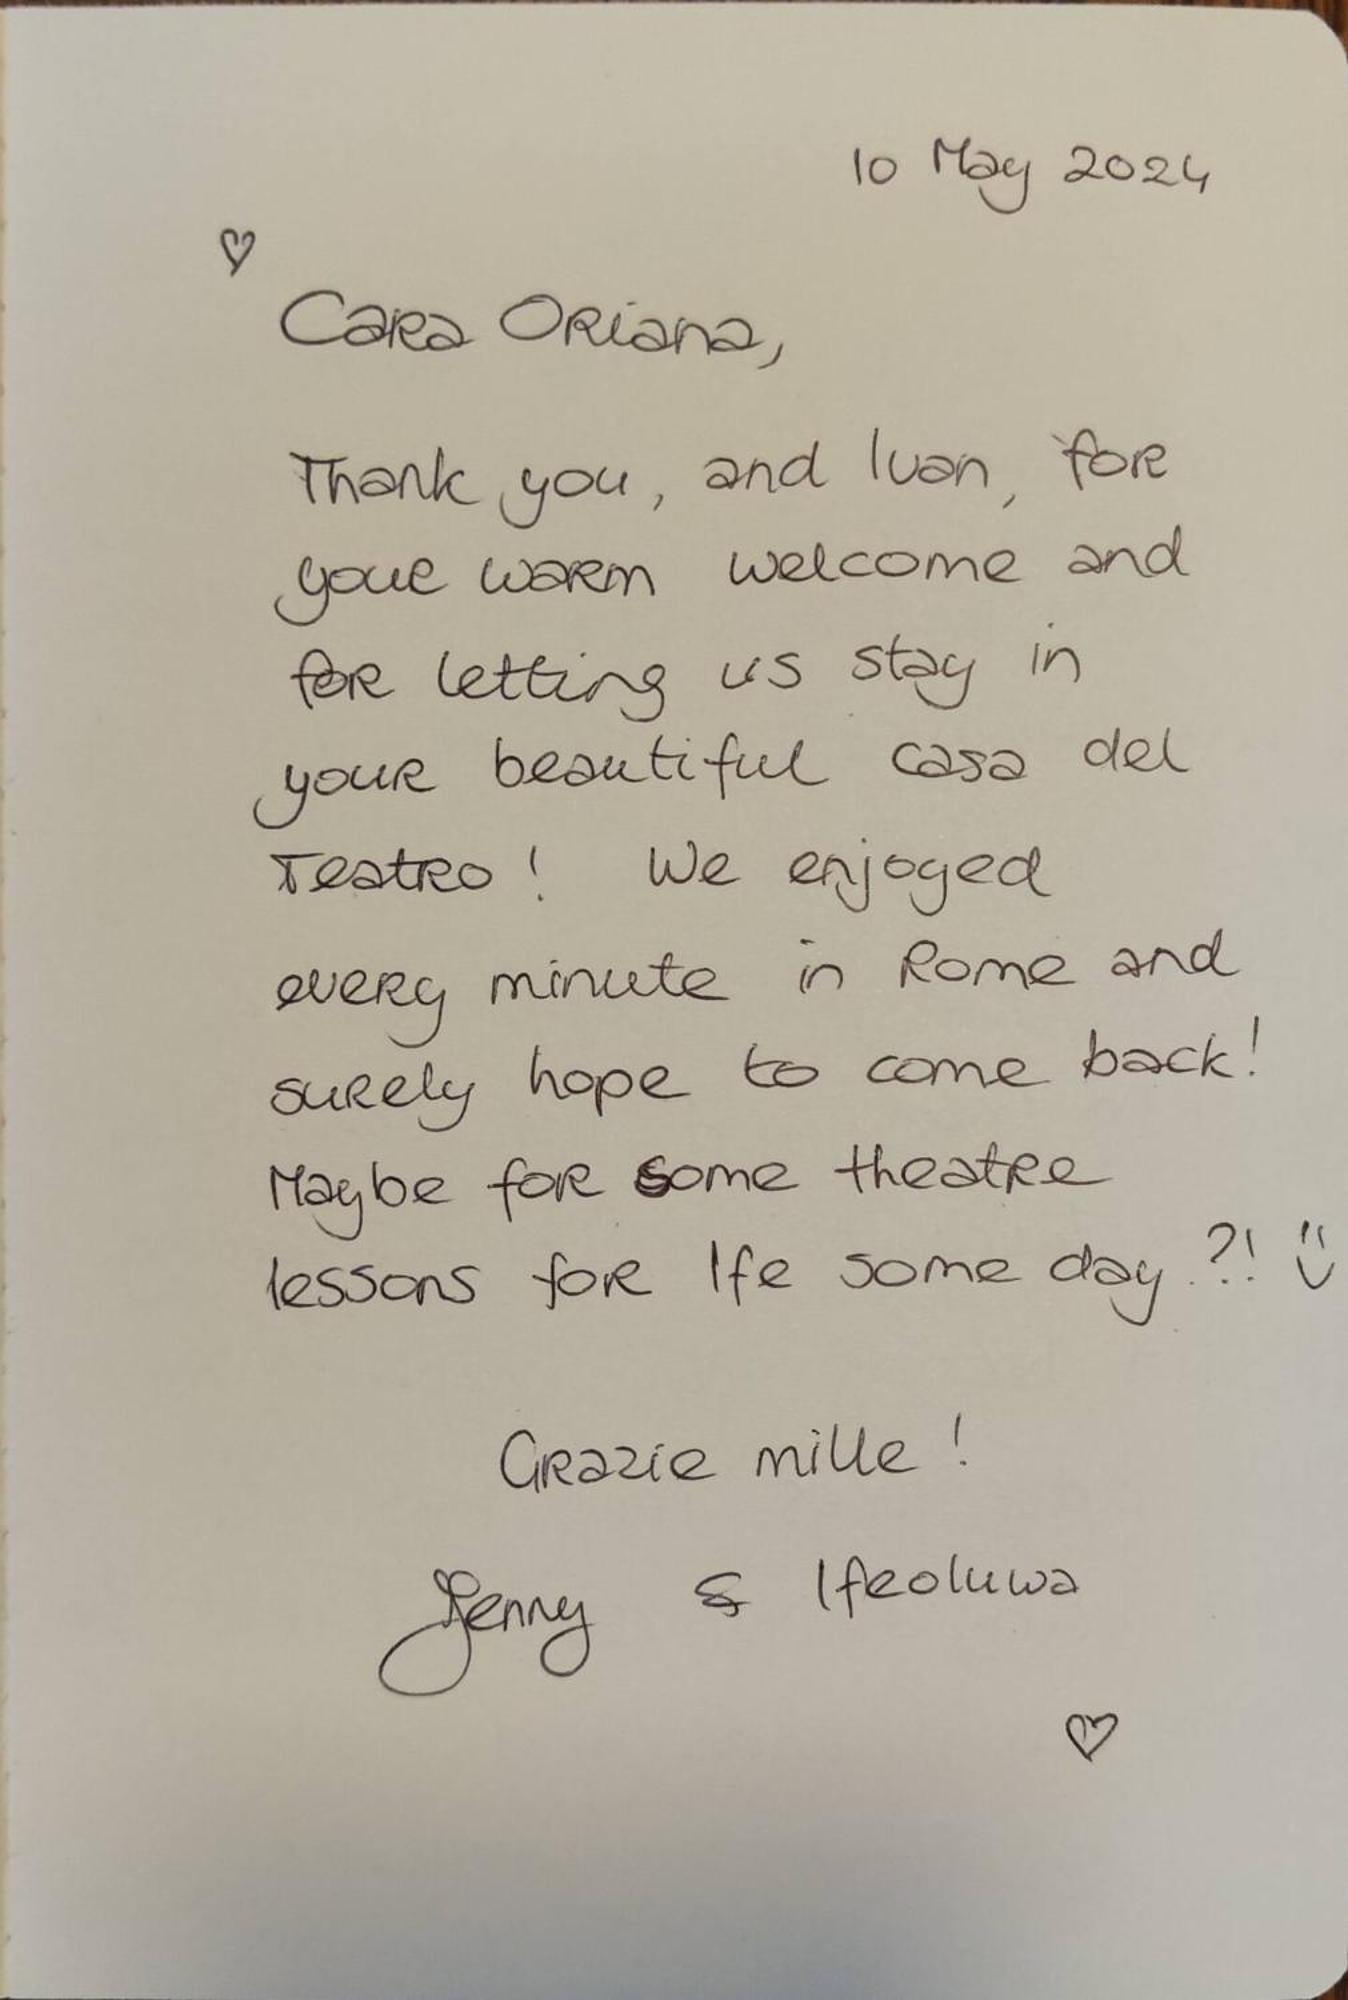 10 May 2024
♡
Cara Oriana,
Thank you, and Ivan, for
your warm welcome and
for letting us stay in
your beautiful casa del
Teatro! We enjoyed
every minute in Rome and
surely hope to come back!
Maybe for some theatre
lessons for Ife some day ?! ü
Grazie mille!
Jenny & Ifeoluwa
♡